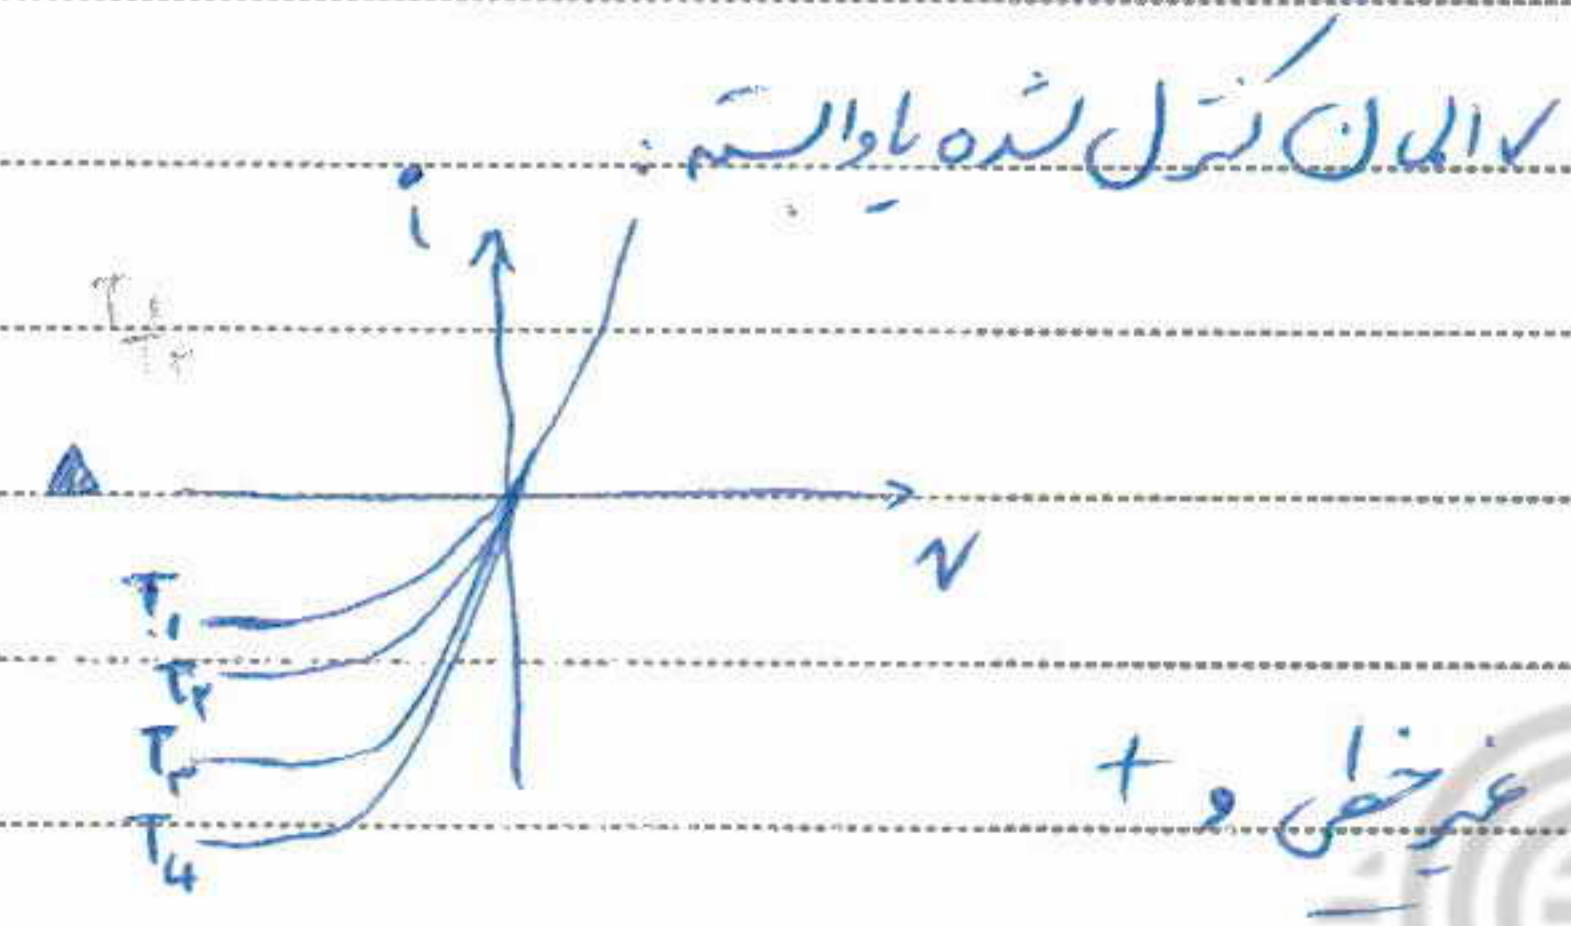 ✓ المان کنترل شده یا وابسته :
i
V
T۱
T۲
T۳
T4
غیر خطی و +